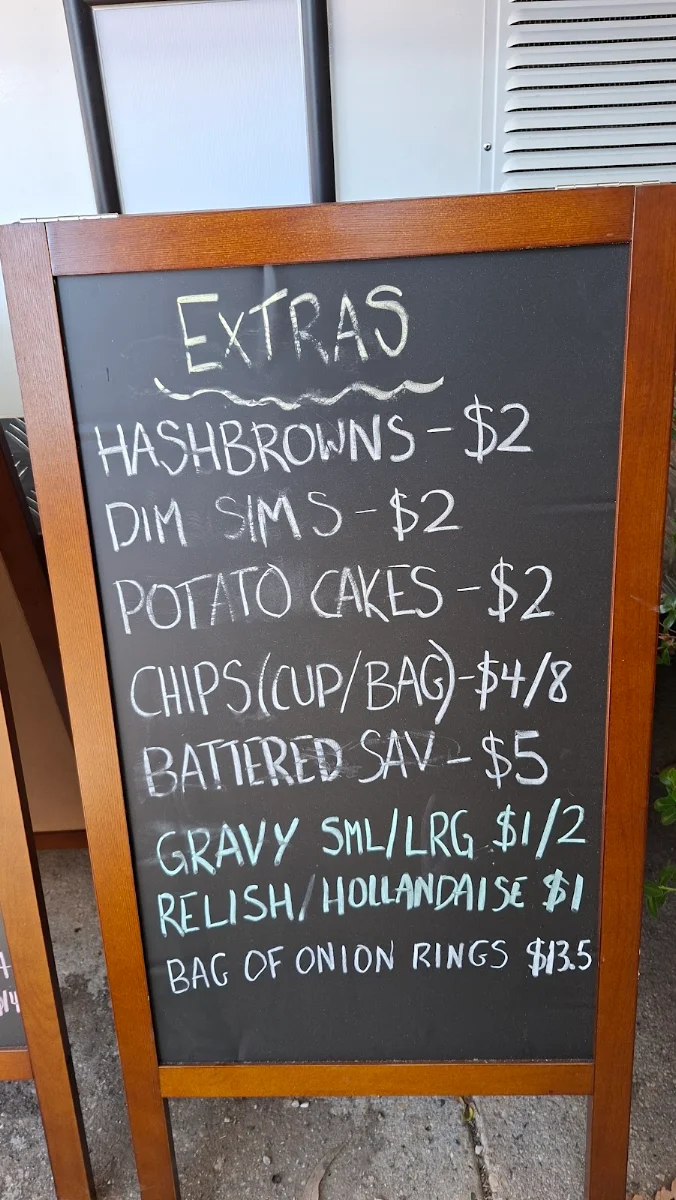 EXTRAS
HASHBROWNS - $2
DIM SIMS - $2
POTATO CAKES - $2
CHIPS (CUP/BAG) - $4/8
BATTERED SAV - $5
GRAVY SML/LRG $1/2
RELISH/HOLLANDAISE $1
BAG OF ONION RINGS $13.5